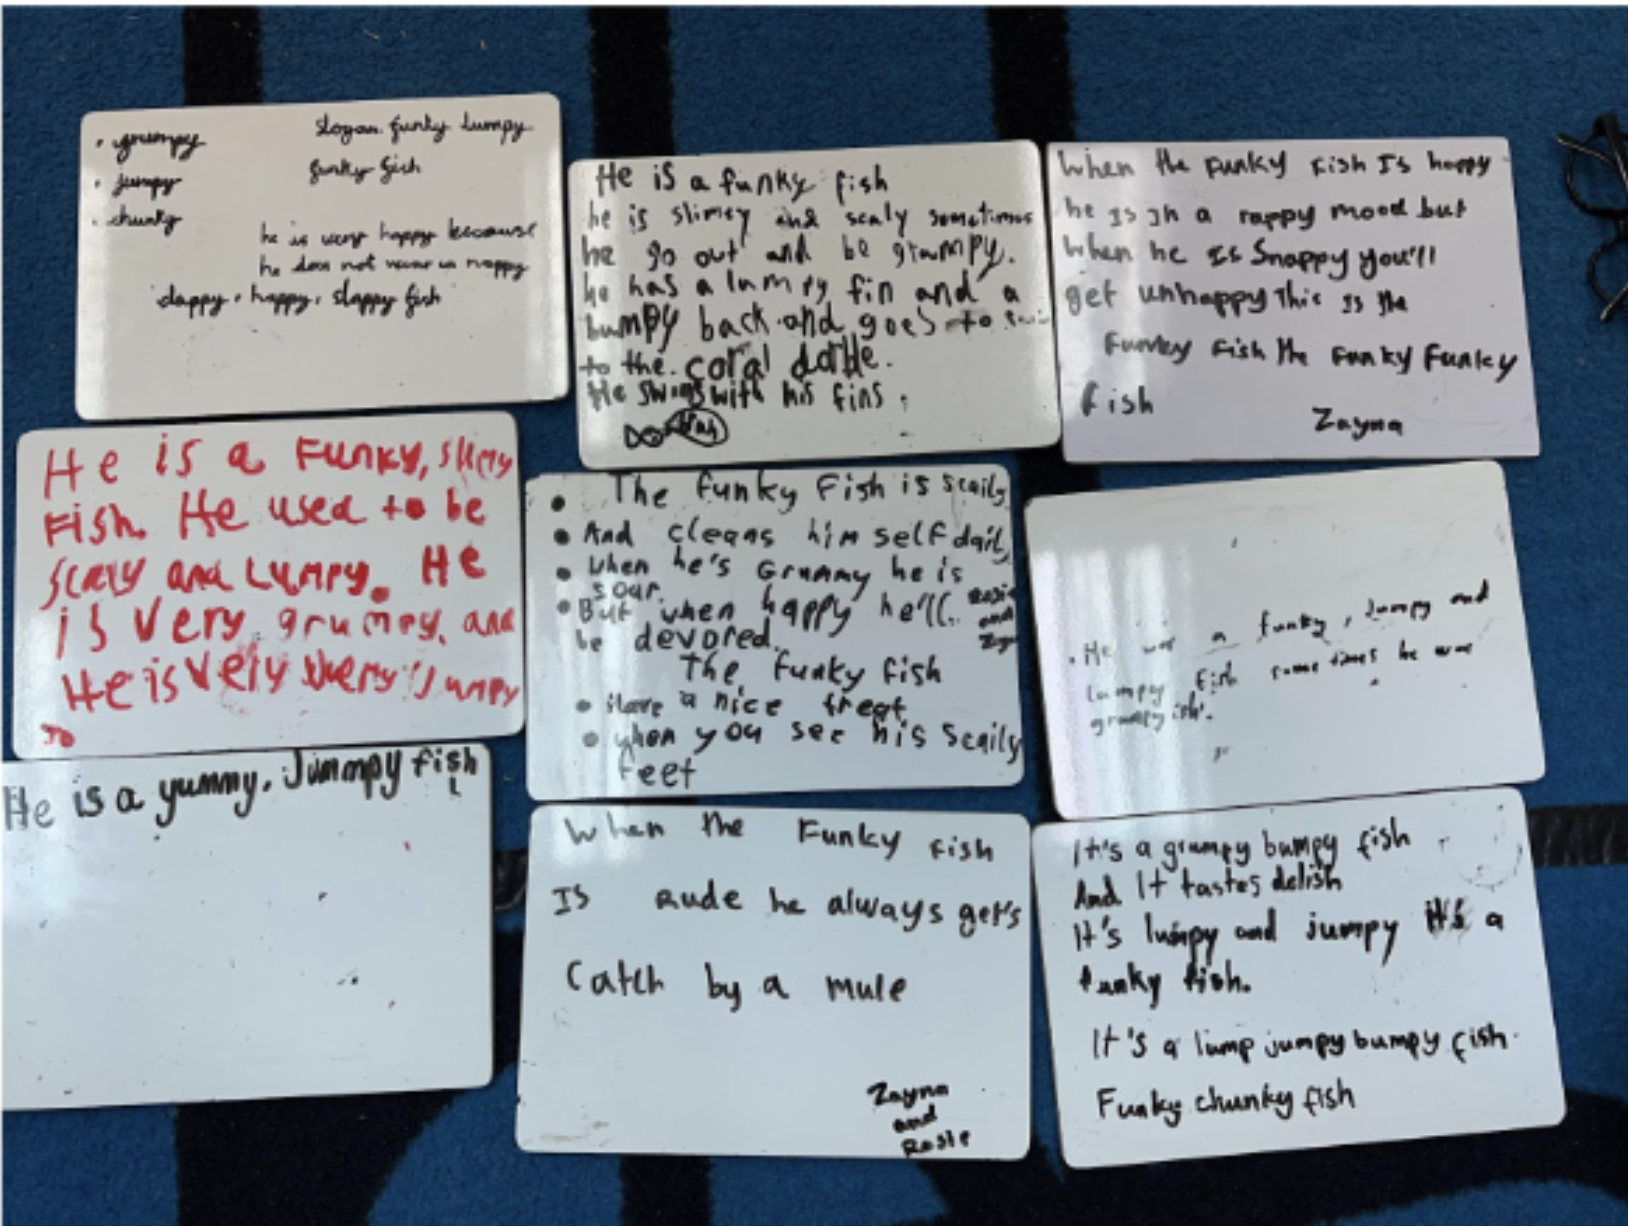 . grumpy
. jumpy
. chunky
slogan. funky lumpy
funky fish
he is very happy because
he does not wear a nappy
clappy, happy, slappy fish
He is a funky fish
he is slimey and scaly sometimes
he go out and be grumpy.
he has a lumpy fin and a
bumpy back and goes to
to the. coral
He swims with his fins.
When the Funky Fish Is happy
he Is In a rappy mood but
when he Is Snappy you'll
get unhappy This Is the
Funky Fish the Funky Funky
fish
Zayna
He is a Funky, slimy
Fish. He used to be
scaly and Lumpy. He
is very grumpy. and
He is very very Jumpy
• The funky Fish is scaily
• And cleans him self daily
• when he's Grummy he is
sour.
• But when happy he'll..
be devored.
Rosie
and
The funky fish
• Have a nice treat
• when you see his scaily
feet
. He was a funky, Jumpy and
Lumpy fish some times he was
grumpyish.
He is a yummy. Jummpy fish
When the Funky Fish
Is Rude he always get's
Catch by a mule
Zayna
and
Rosie
It's a grumpy bumpy fish
And It tastes delish
It's lumpy and jumpy it's a
funky fish.
It's a lump jumpy bumpy fish.
Funky chunky fish